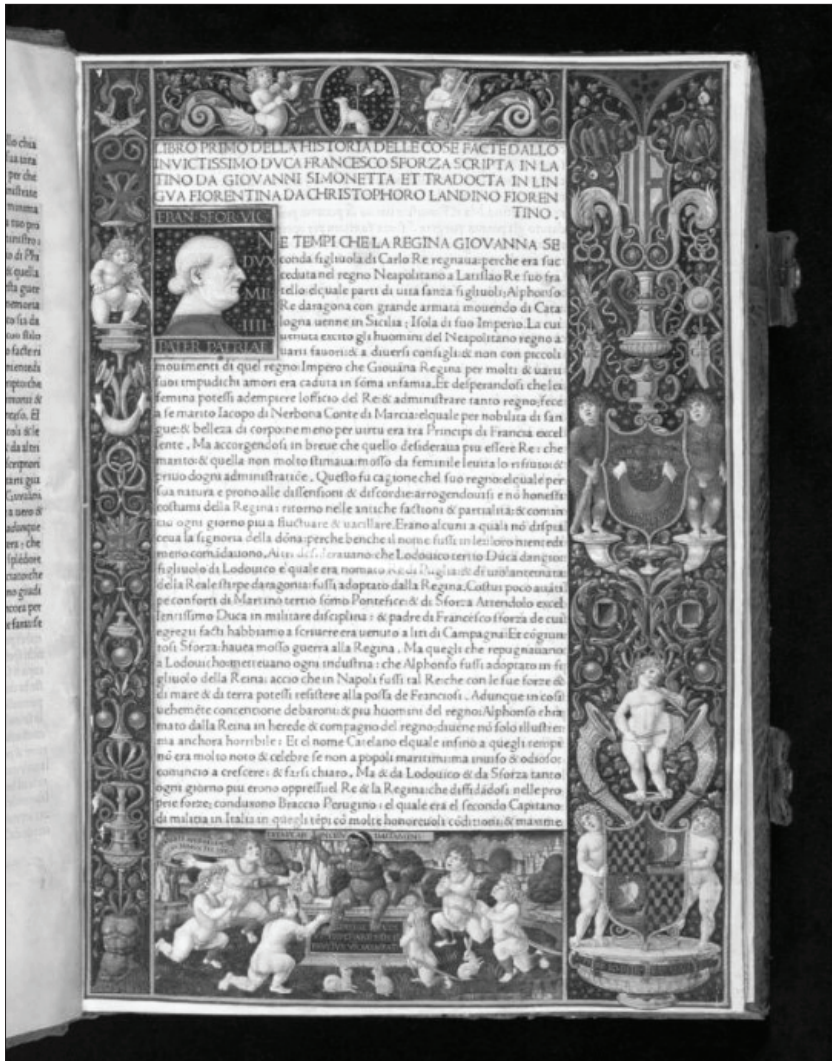 LIBRO PRIMO DELLA HISTORIA DELLE COSE FACTE DALLO
INVICTISSIMO DVCA FRANCESCO SFORZA SCRIPTA IN LA
TINO DA GIOVANNI SIMONETTA ET TRADOCTA IN LIN
GVA FIORENTINA DA CHRISTOPHORO LANDINO FIOREN
TINO.
FRAN. SFOR. VIC
DVX
MLI
IIII
PATER PATRIAE
NE TEMPI CHE LA REGINA GIOVANNA SE
conda figliuola di Carlo Re regnaua: perche era suc
ceduta nel regno Neapolitano a Latislao Re suo fra
tello: elquale parti di uita sanza figliuoli: Alphonso
Re daragona con grande armata mouendo di Cata
logna uenne in Sicilia: Isola di suo Imperio. La cui
uenuta excito gli huomini del Neapolitano regno a
uarii fauori: & a diuersi consigli: & non con piccoli
mouimenti di quel regno: Impero che Giouãna Regina per molti & uarii
suoi impudichi amori era caduta in sõma infamia. Et desperandosi che lei
femina potessi adempiere lofficio del Re: & administrare tanto regno: fece
a se marito Iacopo di Nerbona Conte di Marcia: elquale per nobilita di san
gue: & belleza di corpo: ne meno per uirtu era tra Principi di Francia excel
lente. Ma accorgendosi in breue che quello desideraua piu essere Re: che
marito: & quella non molto stimaua: mosso da feminile leuita lo rifiuto: &
priuo dogni administratiõe. Questo fu cagione chel suo regno: elquale per
sua natura e prono alle dissensioni & discordie: arrogendouisi e nõ honesti
costumi della Regina: ritorno nelle antiche factioni & partialita: & comin
cio ogni giorno piu a fluctuare & uacillare. Erano alcuni a quali nõ dispia
ceua la signoria della dõna: perche benche il nome fussi in lei: loro niente di
meno comãdauono. Altri desiderauano: che Lodouico tertio Duca dangio:
figliuolo di Lodouico el quale era nomato Re di Puglia: & di uiolante nata
della Reale stirpe daragonia: fussi adoptato dalla Regina. Costui poco auãti
pe conforti di Martino tertio sõmo Pontefice: & di Sforza Attendolo excel
lentissimo Duca in militare disciplina: & padre di Francesco sforza de cui
egregii facti habbiamo a scriuere: era uenuto a liti di Campagna: Et cõgiun
tosi Sforza: hauea mosso guerra alla Regina. Ma quegli che repugnauano
a Lodouicho: metteuano ogni industria: che Alphonso fussi adoptato in fi
gliuolo della Reina: accio che in Napoli fussi tal Re: che con le sue forze &
di mare & di terra potessi resistere alla possa de Franciosi. Adunque in cosi
uehemẽte contentione de baroni: & piu huomini del regno: Alphonso chia
mato dalla Reina in herede & compagno del regno: diuene nõ solo illustre:
ma anchora horribile: Et el nome Catelano elquale infino a quegli tempi
nõ era molto noto & celebre se non a popoli maritimi: ma inuiso & odioso:
comincio a crescere: & farsi chiaro. Ma & da Lodouico & da Sforza tanto
ogni giorno piu erono oppressi el Re & la Regina: che diffidãdosi nelle pro
prie forze: condusono Braccio Perugino: el quale era el secondo Capitano
di militia in Italia in quegli tẽpi cõ molte honoreuoli cõditioni: & maxime